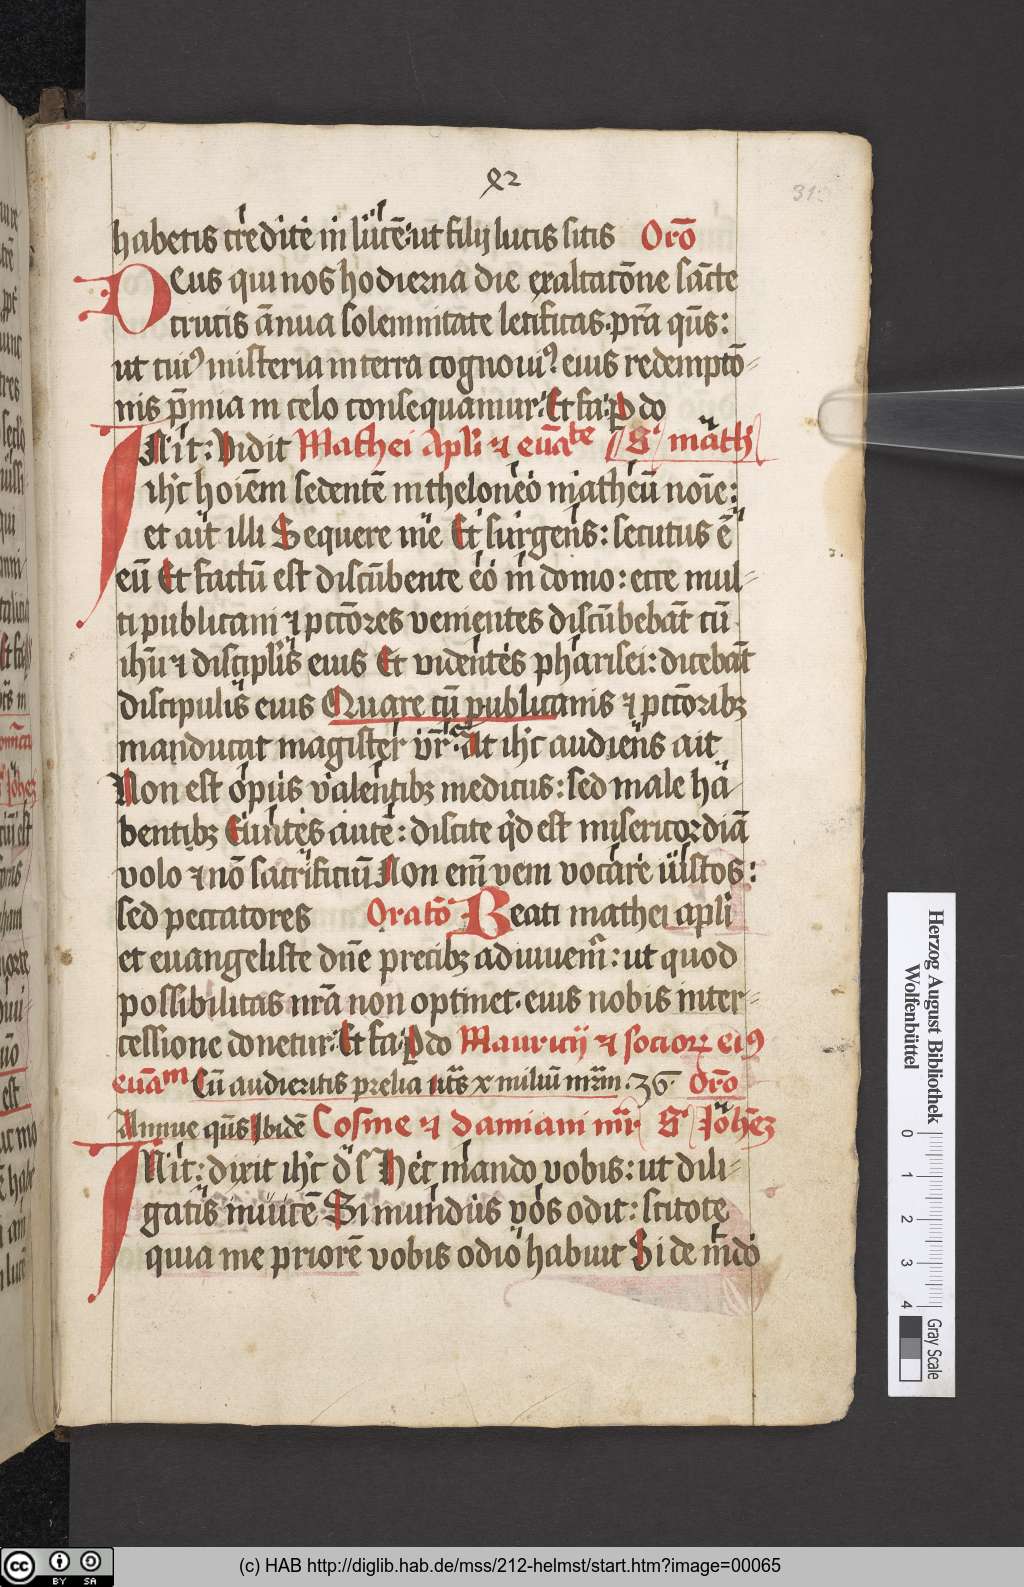 habetis credite in lucē: ut filij lucis sitis Orō
Deus qui nos hodierna die exaltatōne sācte
crucis ānua solemnitate letificas. pr̄a qs̄:
ut cuiꝰ misteria in terra cognouiꝰ: eius redemptō-
nis p̄mia in celo consequamur: Et fa: P do
INit: Vidit Mathei Apl̄i ⁊ euāᵗᵉ S. māth
ihc̄ hoiēm sedentē in theloneo matheū noīe:
et ait illi Sequere me Et surgens: secutus ē
eū Et factū est discūbente eo in domo: ecce mul-
ti publicani ⁊ pctōres venientes discūbebāt cū
ihū ⁊ discipl̄is eius Et videntes pharisei: dicebāt
discipulis eius Quare cū publicanis ⁊ pctōribꝫ
manducat magister vr̄ At ihc̄ audiens ait
Non est opus valentibꝫ medicus: sed male hā-
bentibꝫ Euntes autē: discite qd̄ est misericordiā
volo ⁊ nō sacrificiū Non em̄ veni vocare iustos:
sed peccatores Oratō Beati mathei apl̄i
et euangeliste dn̄e precibꝫ adiuuem̄: ut quod
possibilitas nrā non optinet. eius nobis inter-
cessione donetur: Et fa: P do Mauricij ⁊ socioꝝ eiꝰ
euāᵐ Cū audieritis prelia u̅t̅s x miliū mr̄m. 36. Orō
Annue qs̄ Ibidē Cosme ⁊ damiani mr̄ S. Johēꝫ
INit: dixit ihc̄ d s Hec mando vobis: ut dili-
gatis inuicē Si mundus vos odit: scitote
quia me priorē vobis odio habuit Si de mdo
Herzog August Bibliothek
Wolfenbüttel
0 1 2 3 4
Gray Scale
(c) HAB http://diglib.hab.de/mss/212-helmst/start.htm?image=00065
cc BY SA